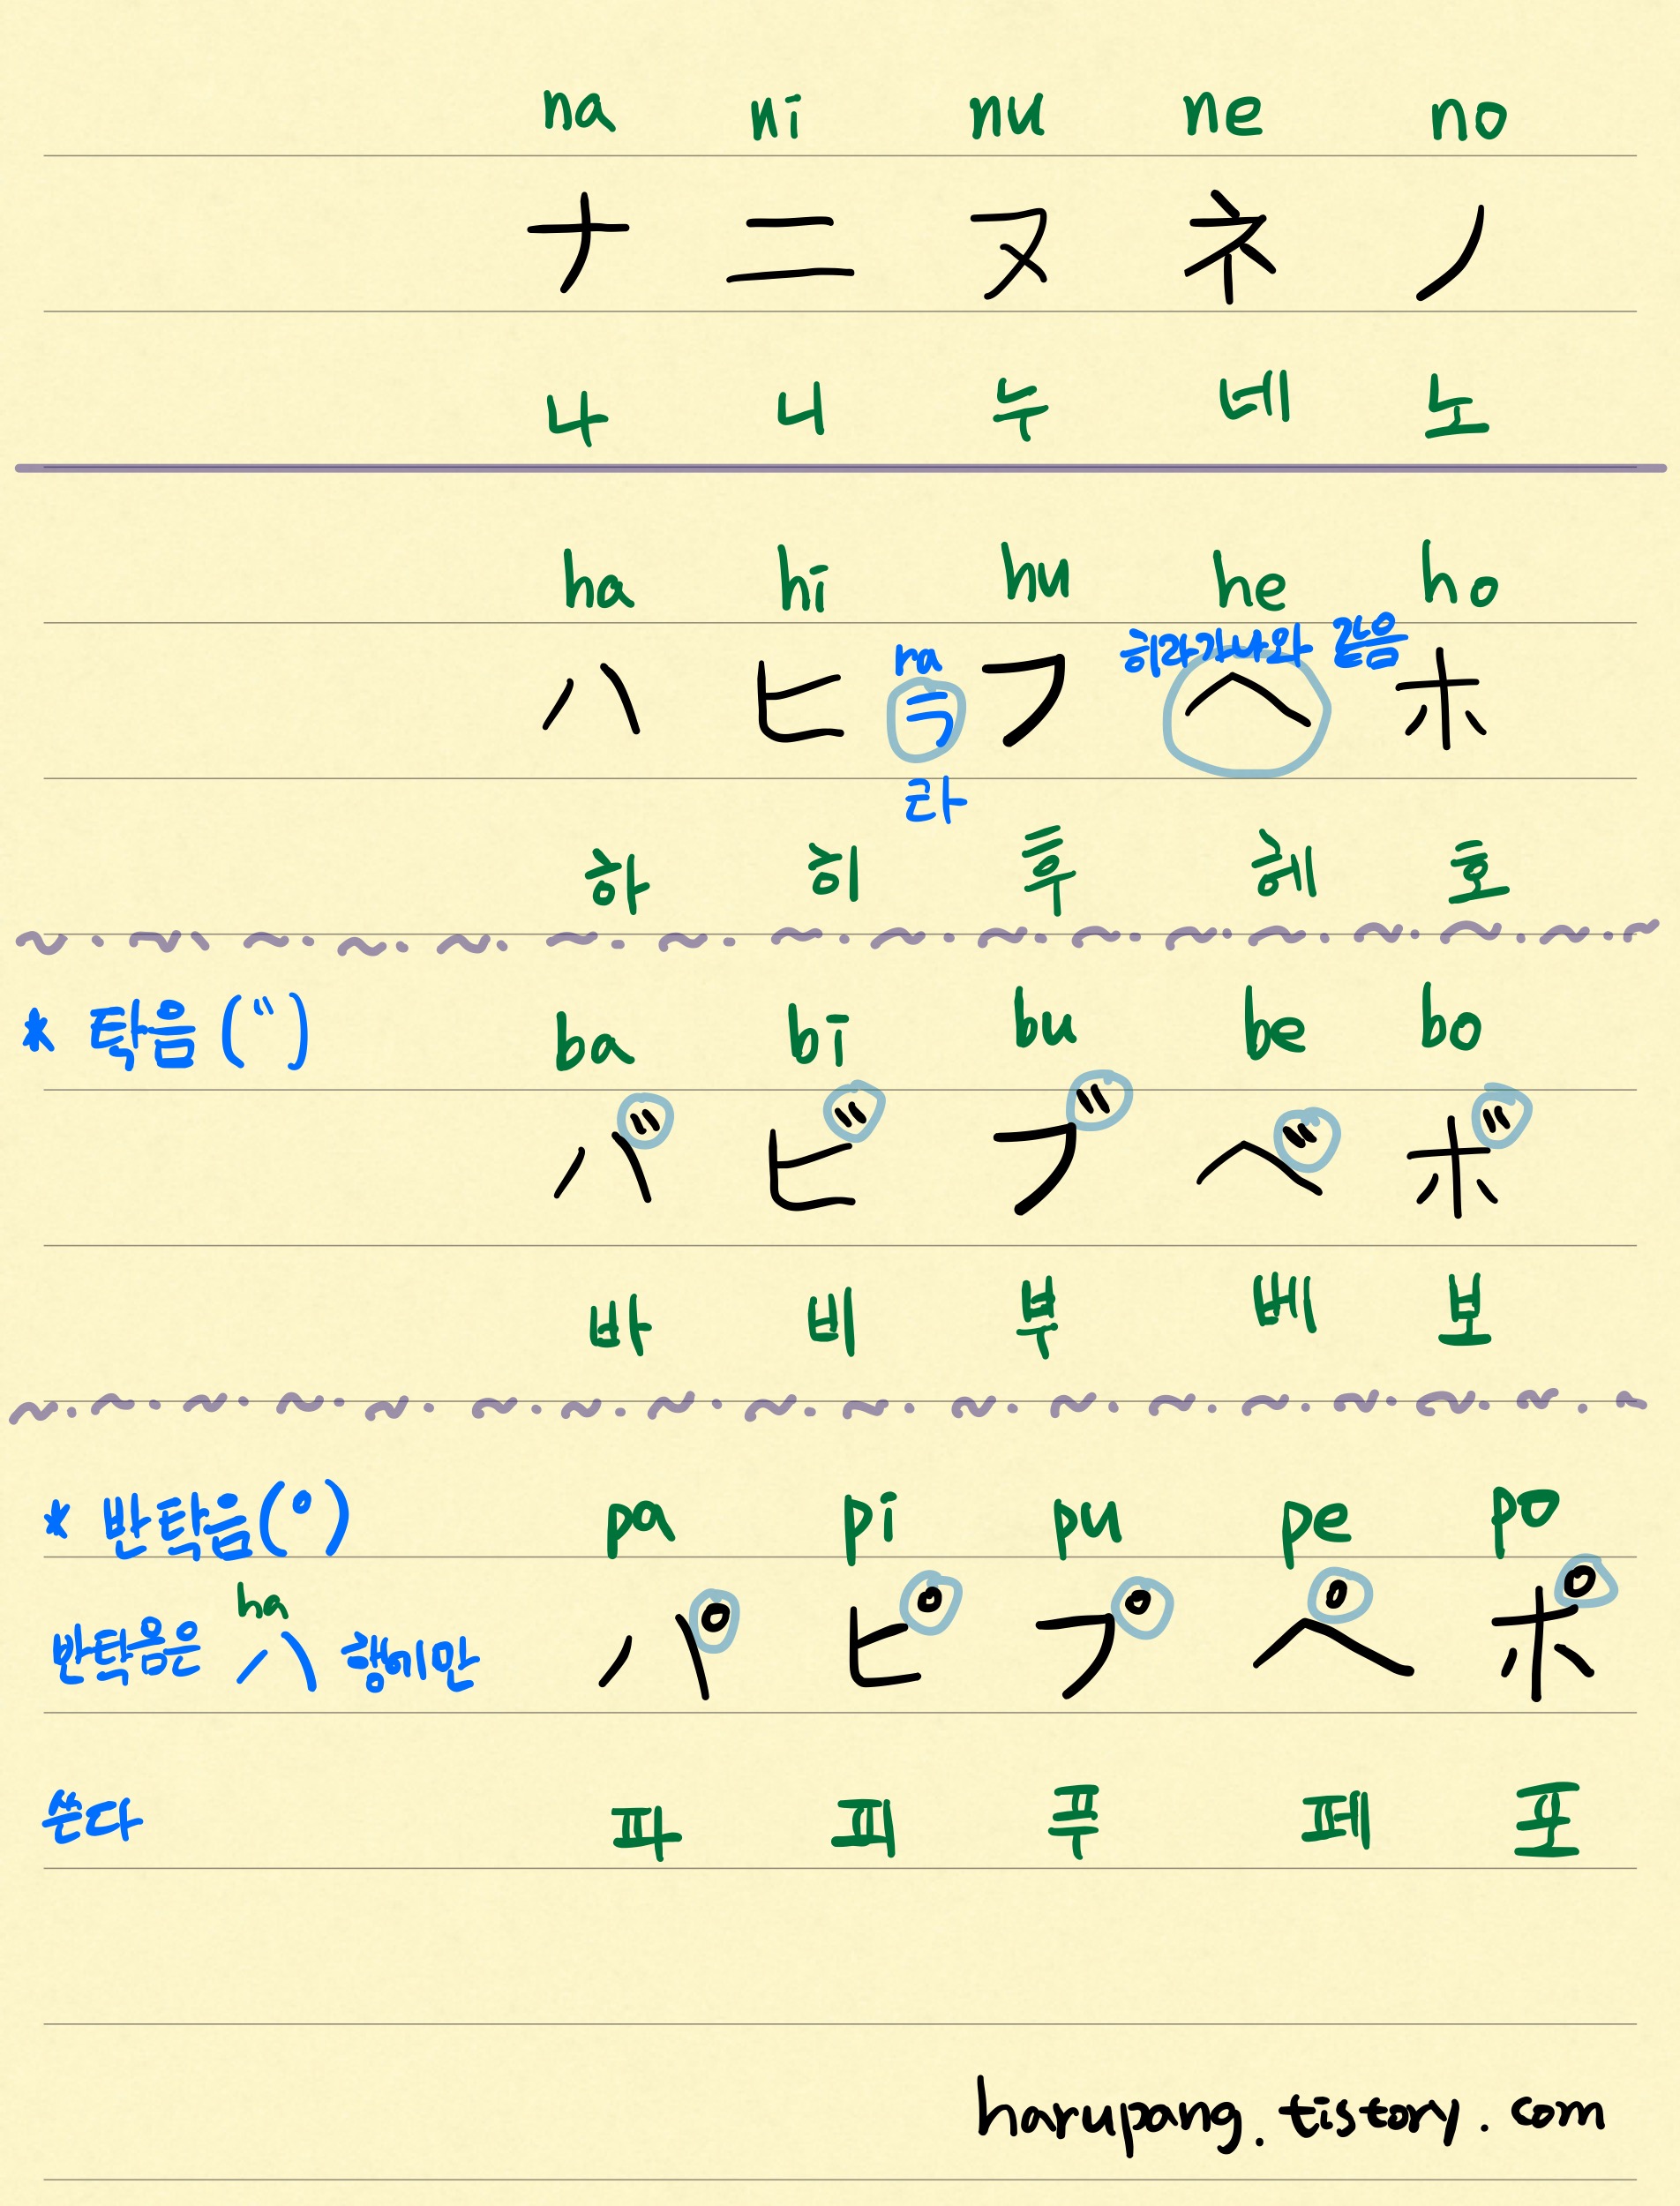 na ni nu ne no
ナ ニ ヌ ネ ノ
나 니 누 네 노
ha hi hu he ho
ra 히라가나와 같음
ハ ヒ ラ フ ヘ ホ
라
하 히 후 헤 호
* 탁음 (゛) ba bi bu be bo
バ ビ ブ ベ ボ
바 비 부 베 보
* 반탁음(゜) pa pi pu pe po
ha
반탁음은 ハ 행에만 パ ピ プ ペ ポ
쓴다 파 피 푸 페 포
harupang.tistory.com